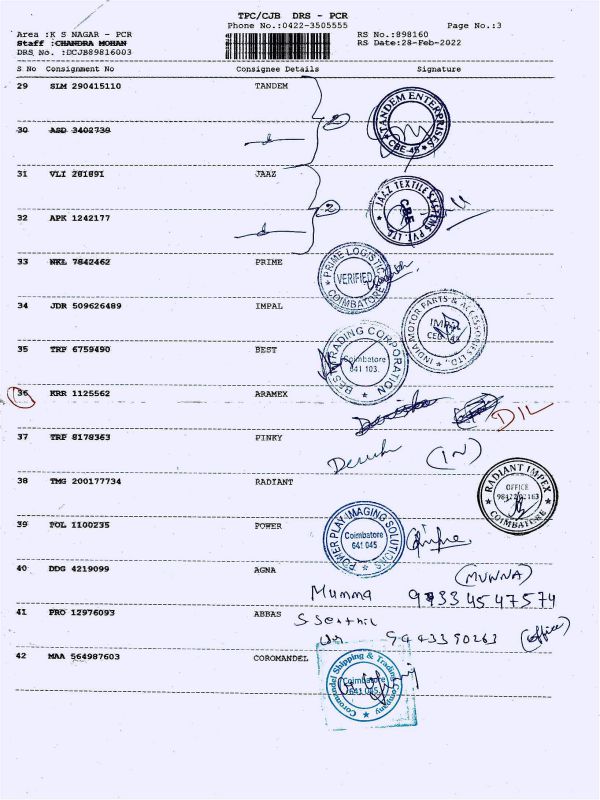 TPC/CJB DRS - PCR
Phone No.:0422-3505555 Page No.:3
Area :K S NAGAR - PCR RS No.:898160
Staff :CHANDRA MOHAN RS Date:28-Feb-2022
DRS No. :DCJB89816003
S No Consignment No Consignee Details Signature
29 SLM 290415110 TANDEM
ATANDEM ENTERPRISES
CBE-45
2
30 ASD 3402739
31 VLI 281891 JAAZ
JAAZ TEXTILE SYSTEMS PVT. LTD.
CBE
2
32 APK 1242177
33 NKL 7842462 PRIME
PRIME LOGISTICS
VERIFIED
COIMBATORE
34 JDR 509626489 IMPAL
INDIA MOTOR PARTS & ACCESSORIES LTD.
IMPAL
35 TRP 6759490 BEST
BEST TRADING CORPORATION
Coimbatore
641 103.
36 KRR 1125562 ARAMEX
DIL
37 TRP 8178363 PINKY
(IN)
38 TMG 200177734 RADIANT
RADIANT IMPEX
OFFICE
COIMBATORE
39 POL 1100235 POWER
POWER PLAY IMAGING SOLUTIONS
Coimbatore
641 045
40 DDG 4219099 AGNA
(MUNNA)
Mumma
41 PRO 12976093 ABBAS
S Senthil
(office)
42 MAA 564987603 COROMANDEL
Coromandel Shipping & Trading Company
Coimbatore
641 045.